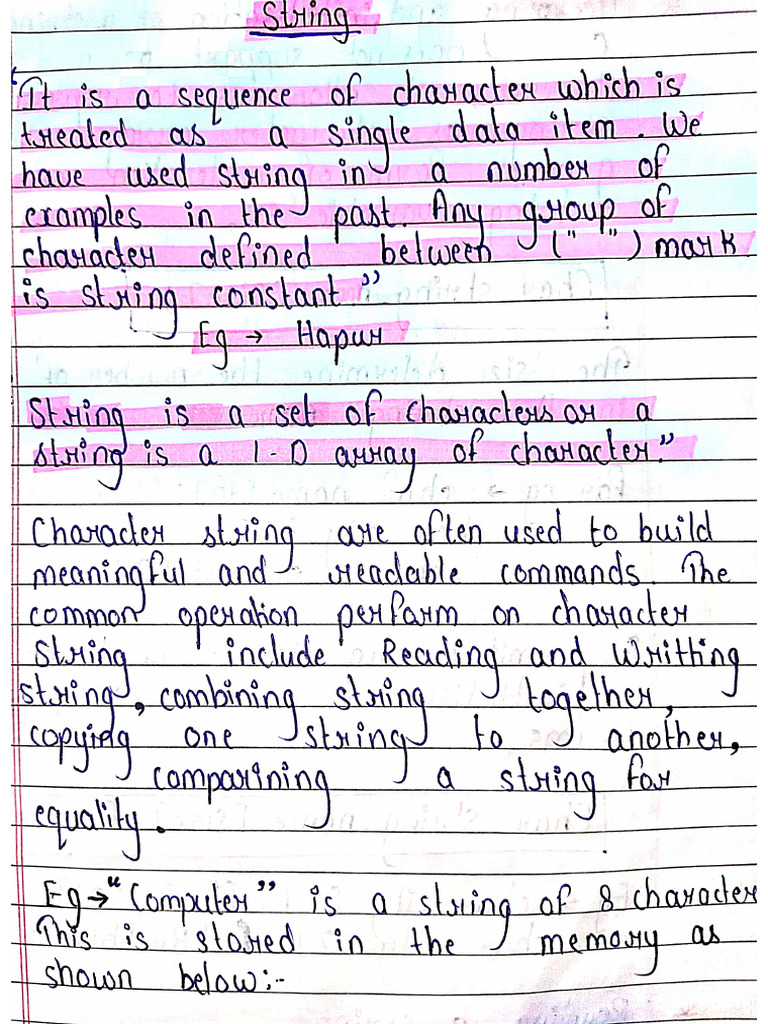 String
"It is a sequence of character which is
treated as a single data item. We
have used string in a number of
examples in the past. Any group of
character defined between (" ") mark
is string constant."
Eg → Hapur
String is a set of characters or a
string is a 1-D array of character."
Character string are often used to build
meaningful and readable commands. The
common operation perform on character
string include Reading and Writting
string, combining string together,
copying one string to another,
comparining a string for
equality.
Eg → "Computer" is a string of 8 character
This is stored in the memory as
shown below:-